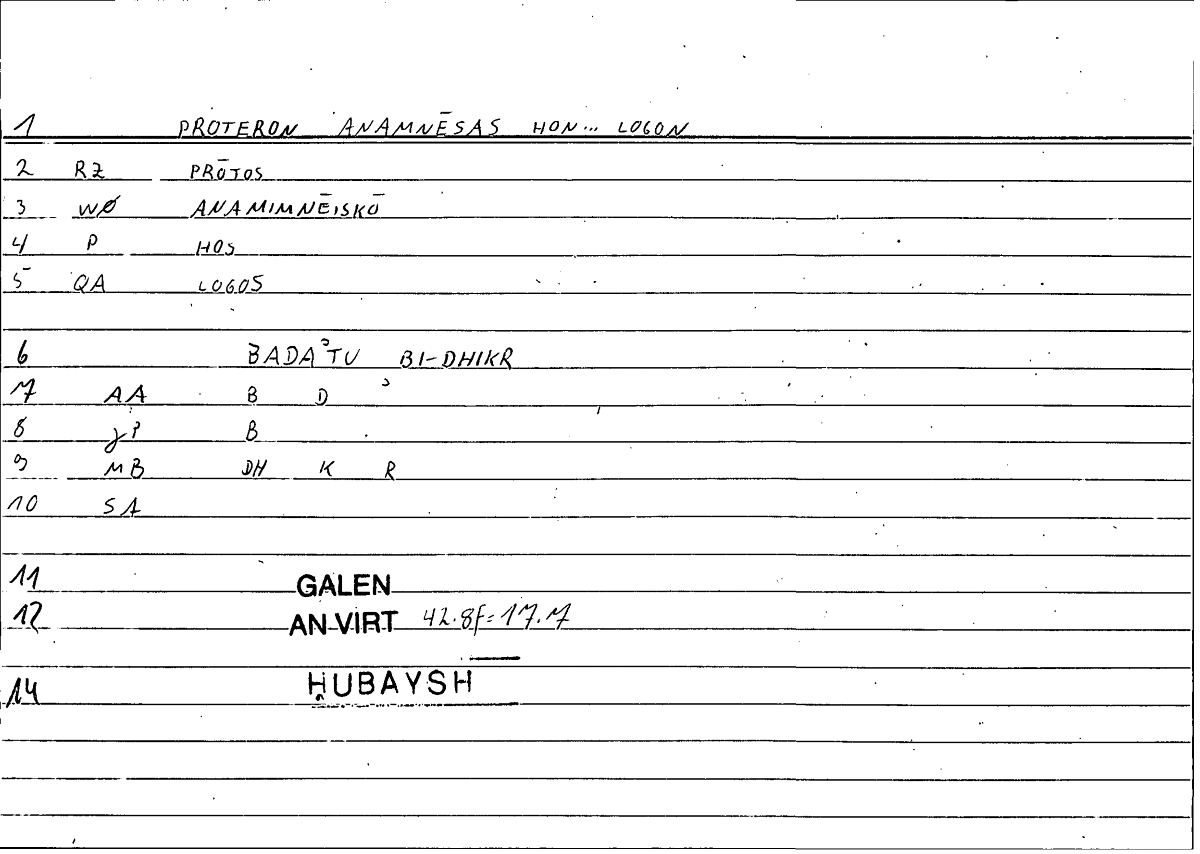 1 PROTERON ANAMNĒSAS HON... LOGON
2 RZ PRŌTOS
3 WØ ANAMIMNĒISKŌ
4 P HOS
5 QA LOGOS
6 BADAʾTU BI-DHIKR
7 AA B D ʾ
8 JP B
9 MB DH K R
10 SA
11 GALEN
12 AN VIRT 42.8f=17.7
14 ḤUBAYSH